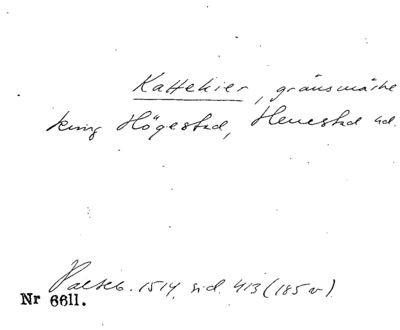 Kattekier, gränsmärke
kring Högestad, Herrestad sd.
Palteb. 1514, sid. 413 (185 v).
Nr 6611.